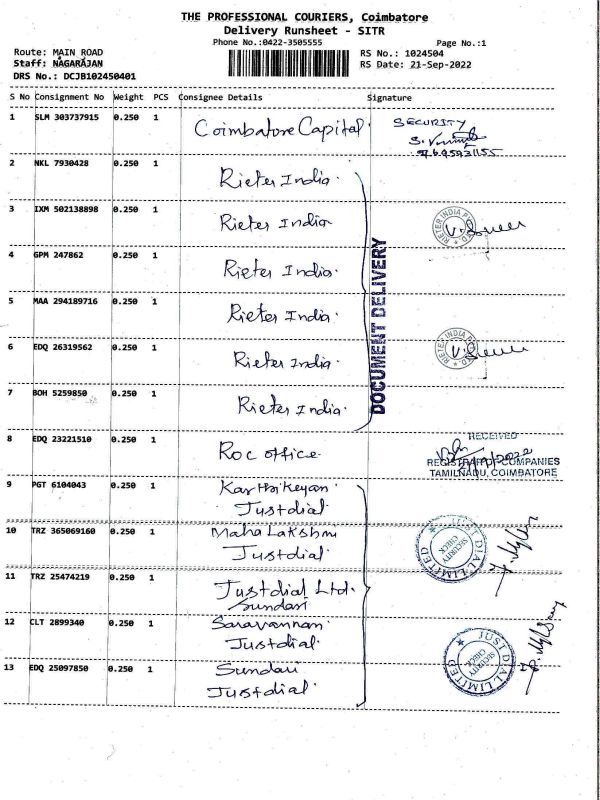 THE PROFESSIONAL COURIERS, Coimbatore
Delivery Runsheet - SITR
Phone No.:0422-3505555
Page No.:1
Route: MAIN ROAD
RS No.: 1024504
Staff: NAGARAJAN
RS Date: 21-Sep-2022
DRS No.: DCJB102450401
S No Consignment No Weight PCS Consignee Details Signature
1 SLM 303737915 0.250 1 Coimbatore Capital. SECURITY
2 NKL 7930428 0.250 1 Rieter India.
3 IXM 502138898 0.250 1 Rieter India
4 GPM 247862 0.250 1 Rieter India.
5 MAA 294189716 0.250 1 Rieter India.
6 EDQ 26319562 0.250 1 Rieter India.
7 BOH 5259850 0.250 1 Rieter India.
DOCUMENT DELIVERY
8 EDQ 23221510 0.250 1 Roc office.
RECEIVED
REGISTRAR OF COMPANIES
TAMILNADU, COIMBATORE
9 PGT 6104043 0.250 1 Karthikeyan.
Justdial.
10 TRZ 365069160 0.250 1 Maha Lakshmi
Justdial.
JUST DIAL LIMITED
SECURITY CHECK
11 TRZ 25474219 0.250 1 Justdial Ltd.
Sundari
12 CLT 2899340 0.250 1 Saravannan.
Justdial.
13 EDQ 25097850 0.250 1 Sundari
Justdial.
JUST DIAL LIMITED
SECURITY CHECK